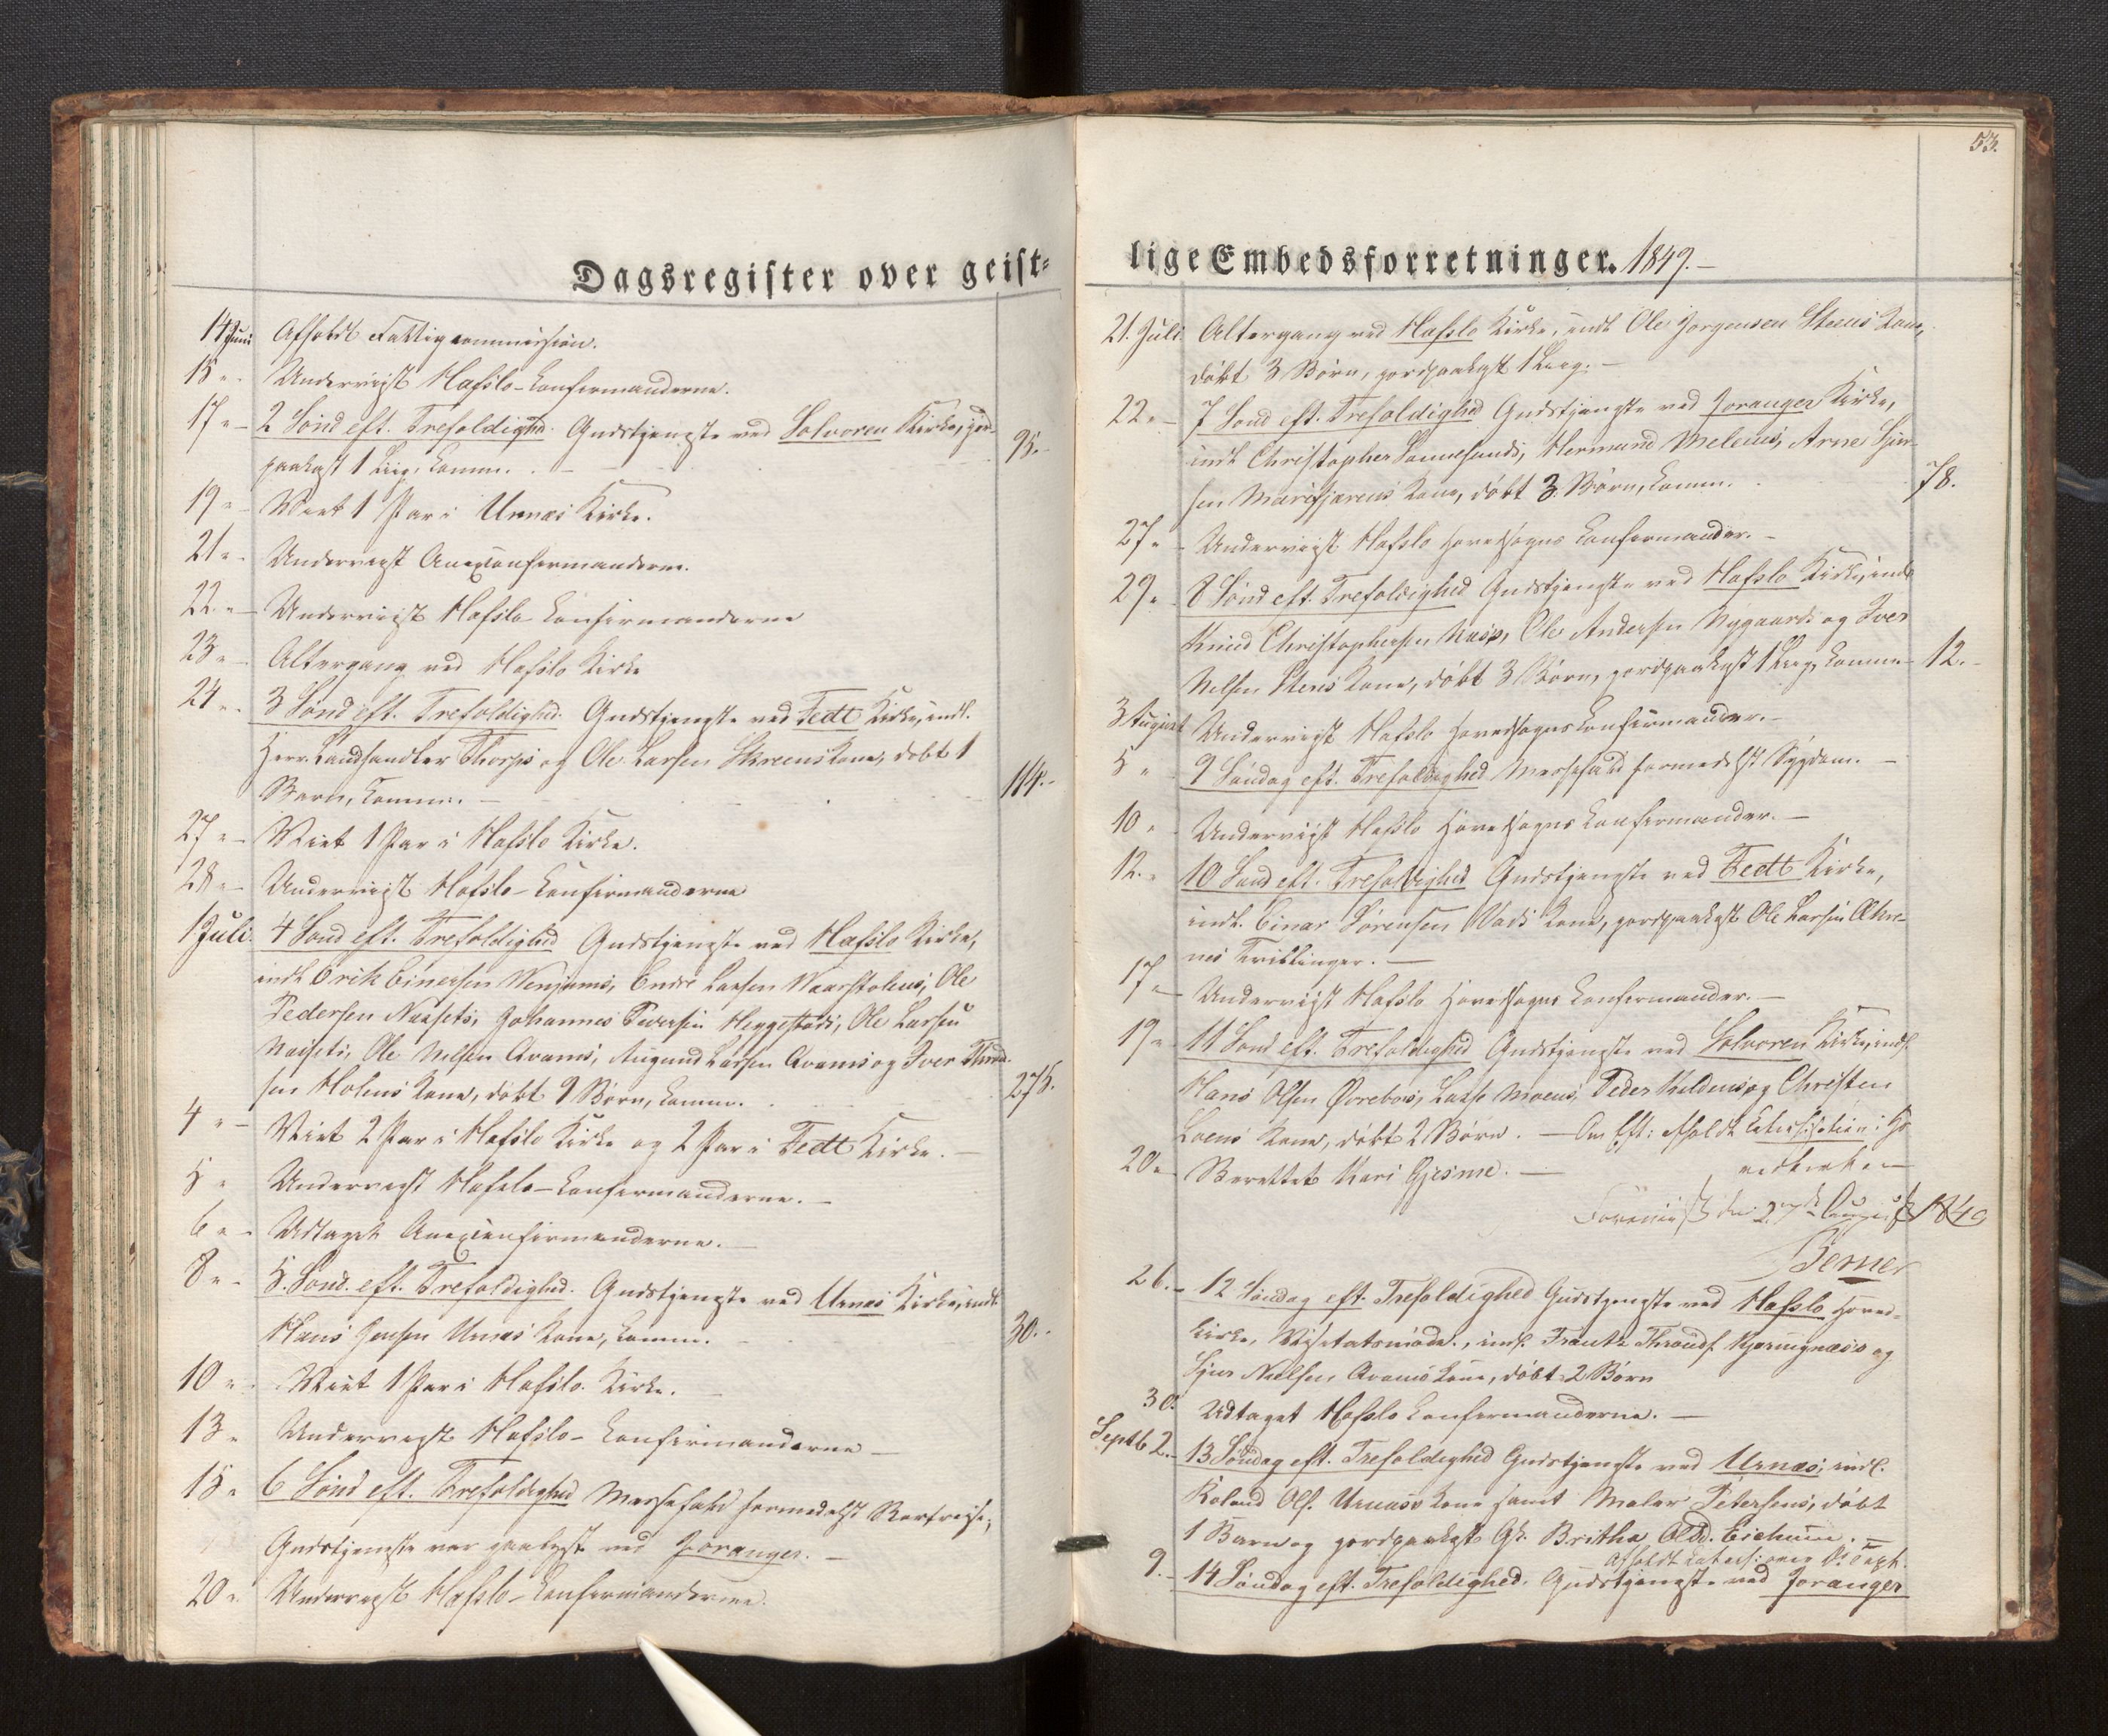 Dagsregister over geist-
14 Juni Afholdt Fattigcommission.
15 " Underviist Hafslo-Confirmanderne.
17 " 2 Sönd eft. Trefoldighd. Gudstjeneste ved Solvoren Kirke, jord-
paakast 1 Liig, Comm. 95.
19 " Viet 1 Par i Urnæs Kirke.
21 " Underviist Anexconfirmanderne.
22 " Underviist Hafslo-Confirmanderne
23 " Altergang ved Hafslo Kirke
24 " 3 Sönd eft. Trefoldighd. Gudstjeneste ved Fedt Kirke, indl.
Herr. Landhandler Thorps og Ole Larsen Skreens Kone, døbt 1
Barn, Comm. 114.
27 " Viet 1 Par i Hafslo Kirke.
28 " Underviist Hafslo-Confirmanderne
1 Juli 4 Sönd eft. Trefoldighed Gudstjeneste ved Hafslo Kirke,
indl Erik Einersen Venjums, Endre Larsen Maarstolens, Ole
Pedersen Næsets, Johannes Pedersen Heggestads, Ole Larsen
Næsets, Ole Nelsen Qvams, Augund Larsen Qvams og Iver Thrond-
sen Molens Kone, døbt 9 Børn, Comm. 275.
4 " Viet 2 Par i Hafslo Kirke og 2 Par i Fedt Kirke.
5 " Underviist Hafslo-Confirmanderne.
6 " Udtaget Anexconfirmanderne.
8 " 5. Sönd. eft. Trefoldighed. Gudstjeneste ved Urnæs Kirke, indl.
Hans Jensen Urnæs Kone, Comm. 30.
10 " Viet 1 Par i Hafslo Kirke.
13 " Underviist Hafslo-Confirmanderne
15 " 6 Sönd eft. Trefoldighed Messefald formedelst
Gudstjeneste var paalyst ved Joranger.
20 " Underviist Hafslo-Confirmanderne.
53.
lige Embedsforretninger. 1849.
21. Juli. Altergang ved Hafslo Kirke, indl Ole Jorgensen Steens Kone,
døbt 3 Børn, jordpaakast 1 Liig.
22 " 7 Sönd eft. Trefoldighed Gudstjeneste ved Joranger Kirke,
indl Christopher Hermund Melens, Arne Sjur-
sen Marifjærens Kone, døbt 3 Børn, Comm. 78.
27 " Underviist Hafslo Hovedsogns Confirmander.
29 " 8 Sönd eft. Trefoldighed Gudstjeneste ved Hafslo Kirke, indl
Knud Christophersen Ole Andersen Nygaards og Iver
Nelsen Steens Kone, døbt 3 Børn, jordpaakast 1 Liig, Comm. 12.
3 August Underviist Hafslo Hovedsogns Confirmander.
5 " 9 Søndag eft. Trefoldighed Messefald formedelst Sygdom.
10 " Underviist Hafslo Hovedsogns Confirmander.
12. " 10 Sönd eft. Trefoldighed Gudstjeneste ved Fedt Kirke,
indl. Einar Sørensen Kone, jordpaakast Ole Larsen
nes Tvillinger.
17 " Underviist Hafslo Hovedsogns Confirmander.
19 " 11 Sönd eft. Trefoldighed Gudstjeneste ved Solvoren Kirke, indl.
Hans Olsen Øvrebøs, Lasse Moens, Peder Kildens og Christen
Loens Kone, døbt 2 Børn. — Afholdt
20 " Berettet Kari Gjesme.
den 27de August 1849
26. 12 Søndag eft. Trefoldighed Gudstjeneste ved Hafslo Hoved-
kirke, Visitatsmøde, indl. Frantz Throndf. Kjeringnæss og
Sjur Nielsen Qvams Kone, døbt 2 Børn
30. Udtaget Hafslo Confirmanderne.
Septb 2. 13 Søndag eft. Trefoldighed Gudstjeneste ved Urnæs, indl.
Roland Ols. Urnæss Kone samt Maler Petersens, døbt
1 Barn og jordpaakast Britha Olsd.
9. 14 Søndag eft. Trefoldighed. Gudstjeneste ved Joranger